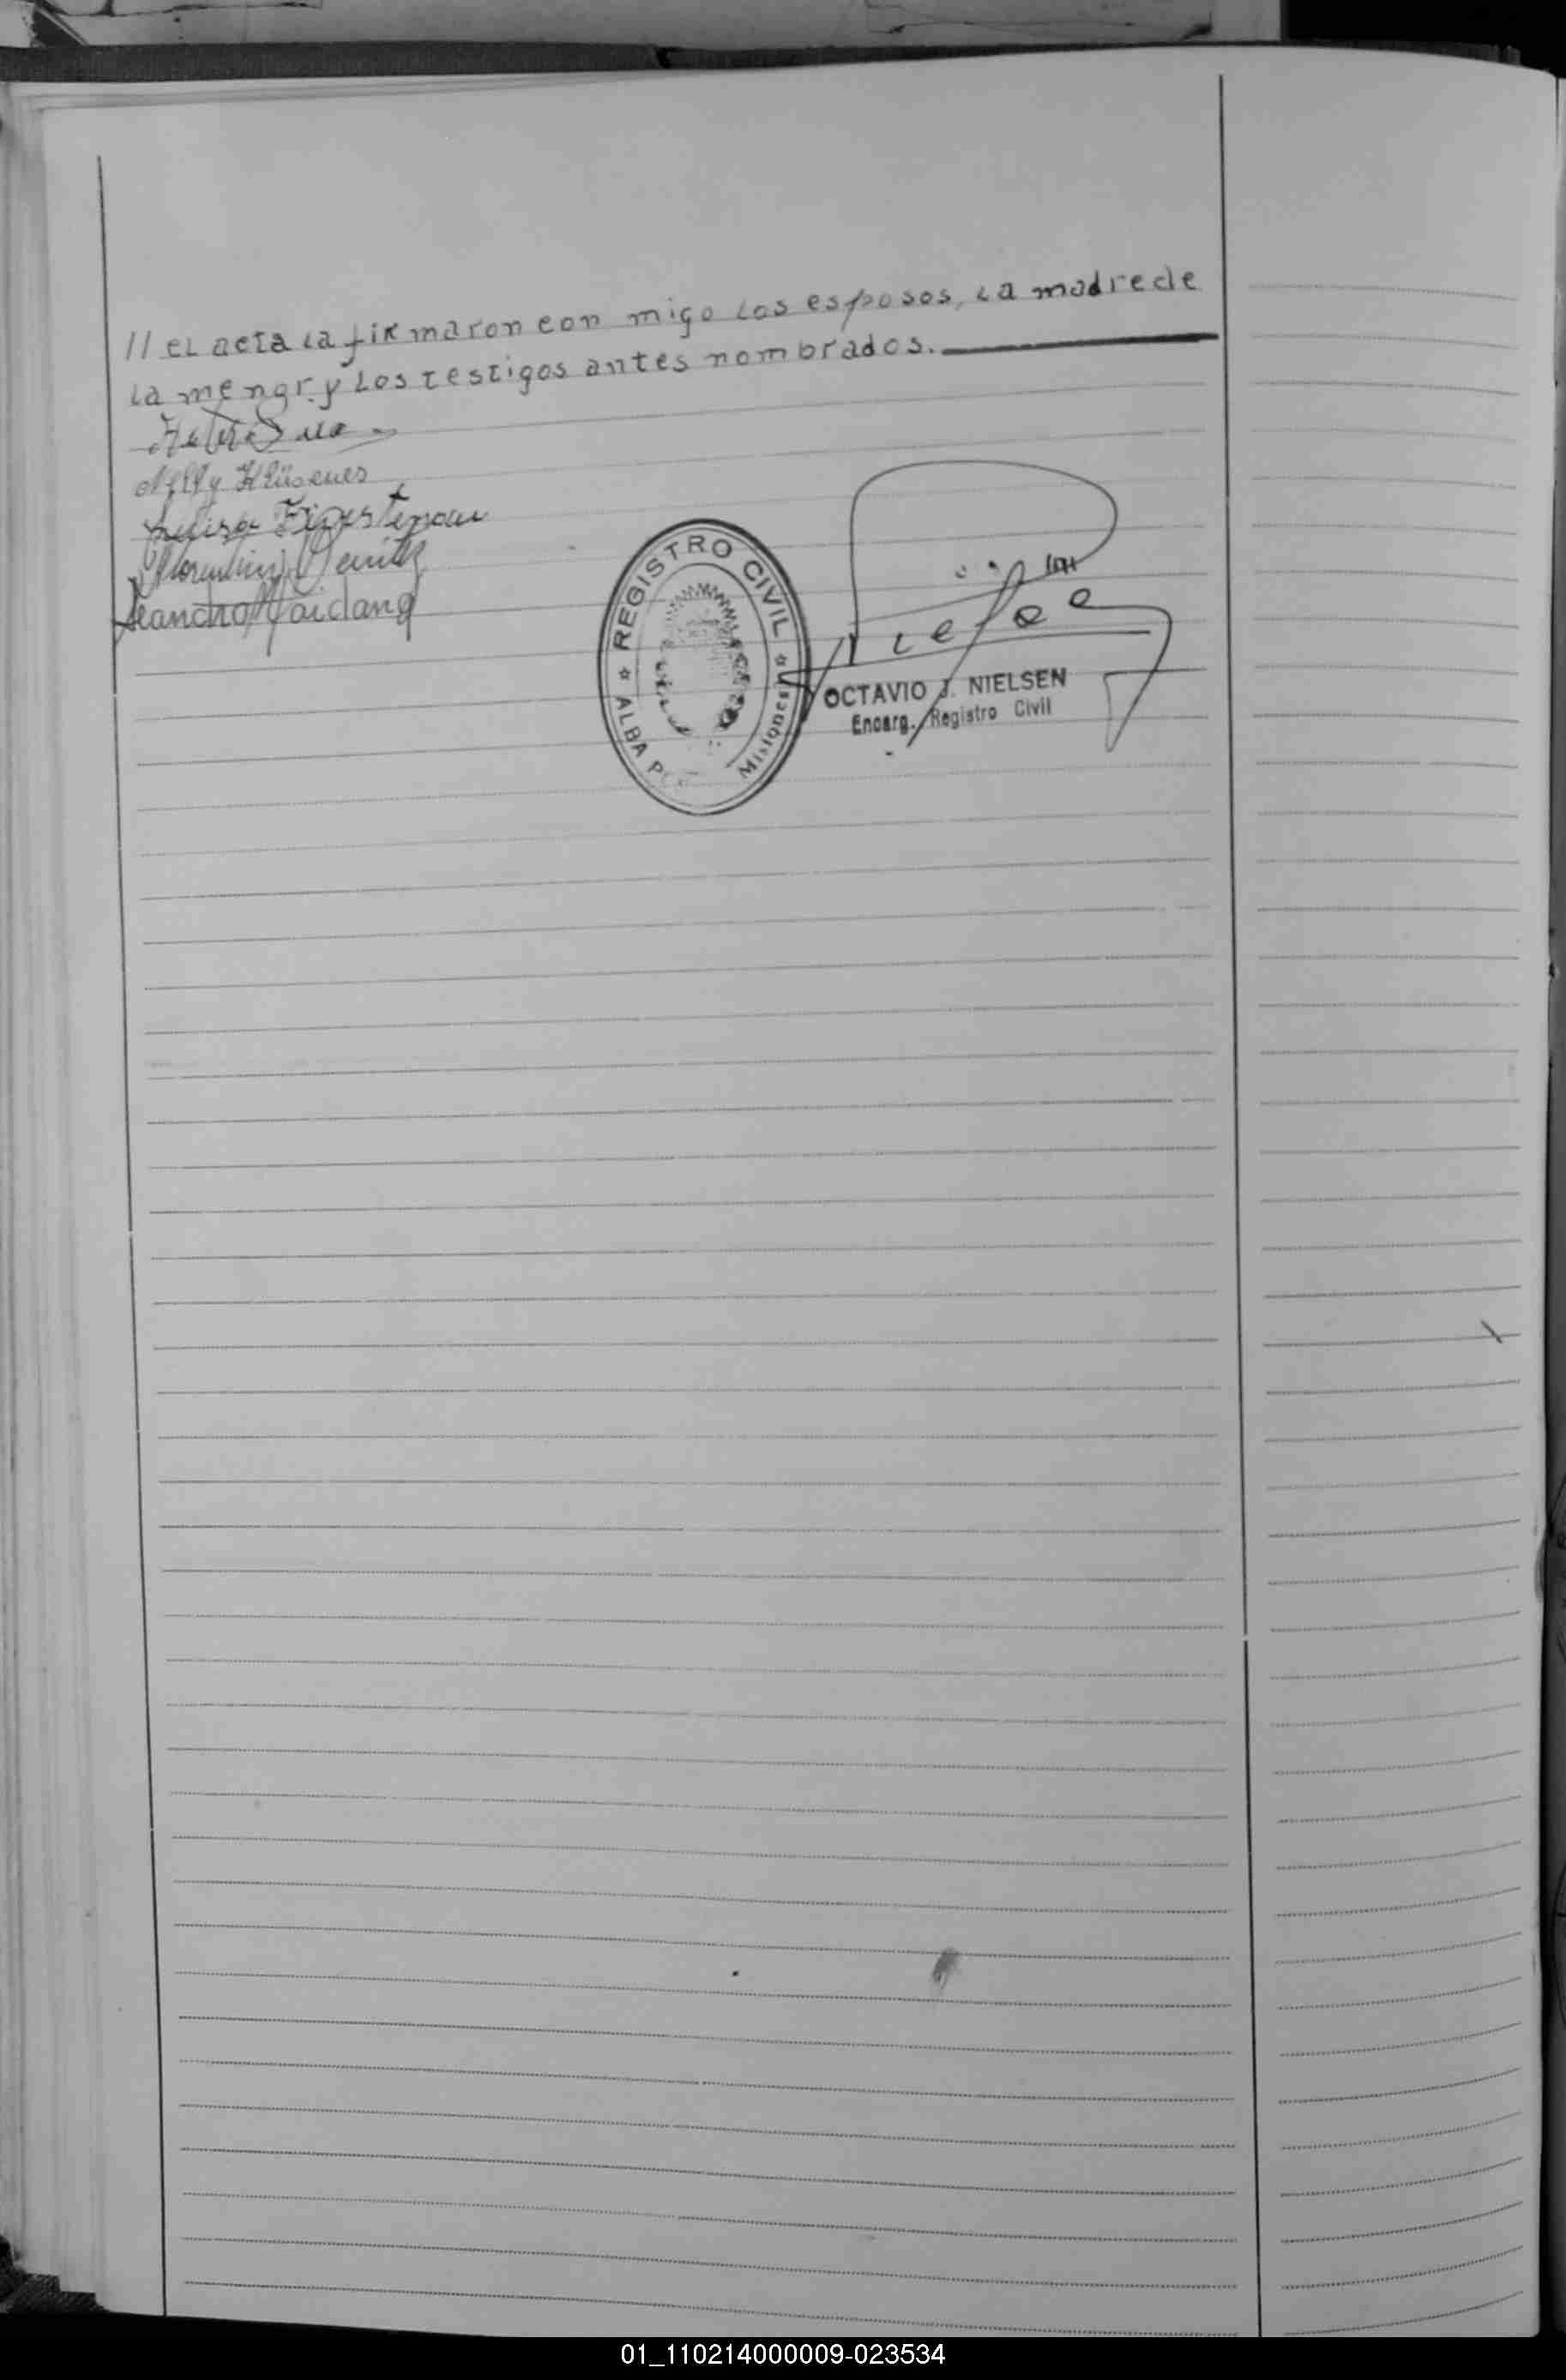 // el acta la firmaron con migo los esposos, la madre de
la menor y los testigos antes nombrados.
Nelly Klüsener
Luisa
REGISTRO CIVIL
ALBA PO
Misiones
OCTAVIO J. NIELSEN
Encarg. Registro Civil
01_110214000009-023534